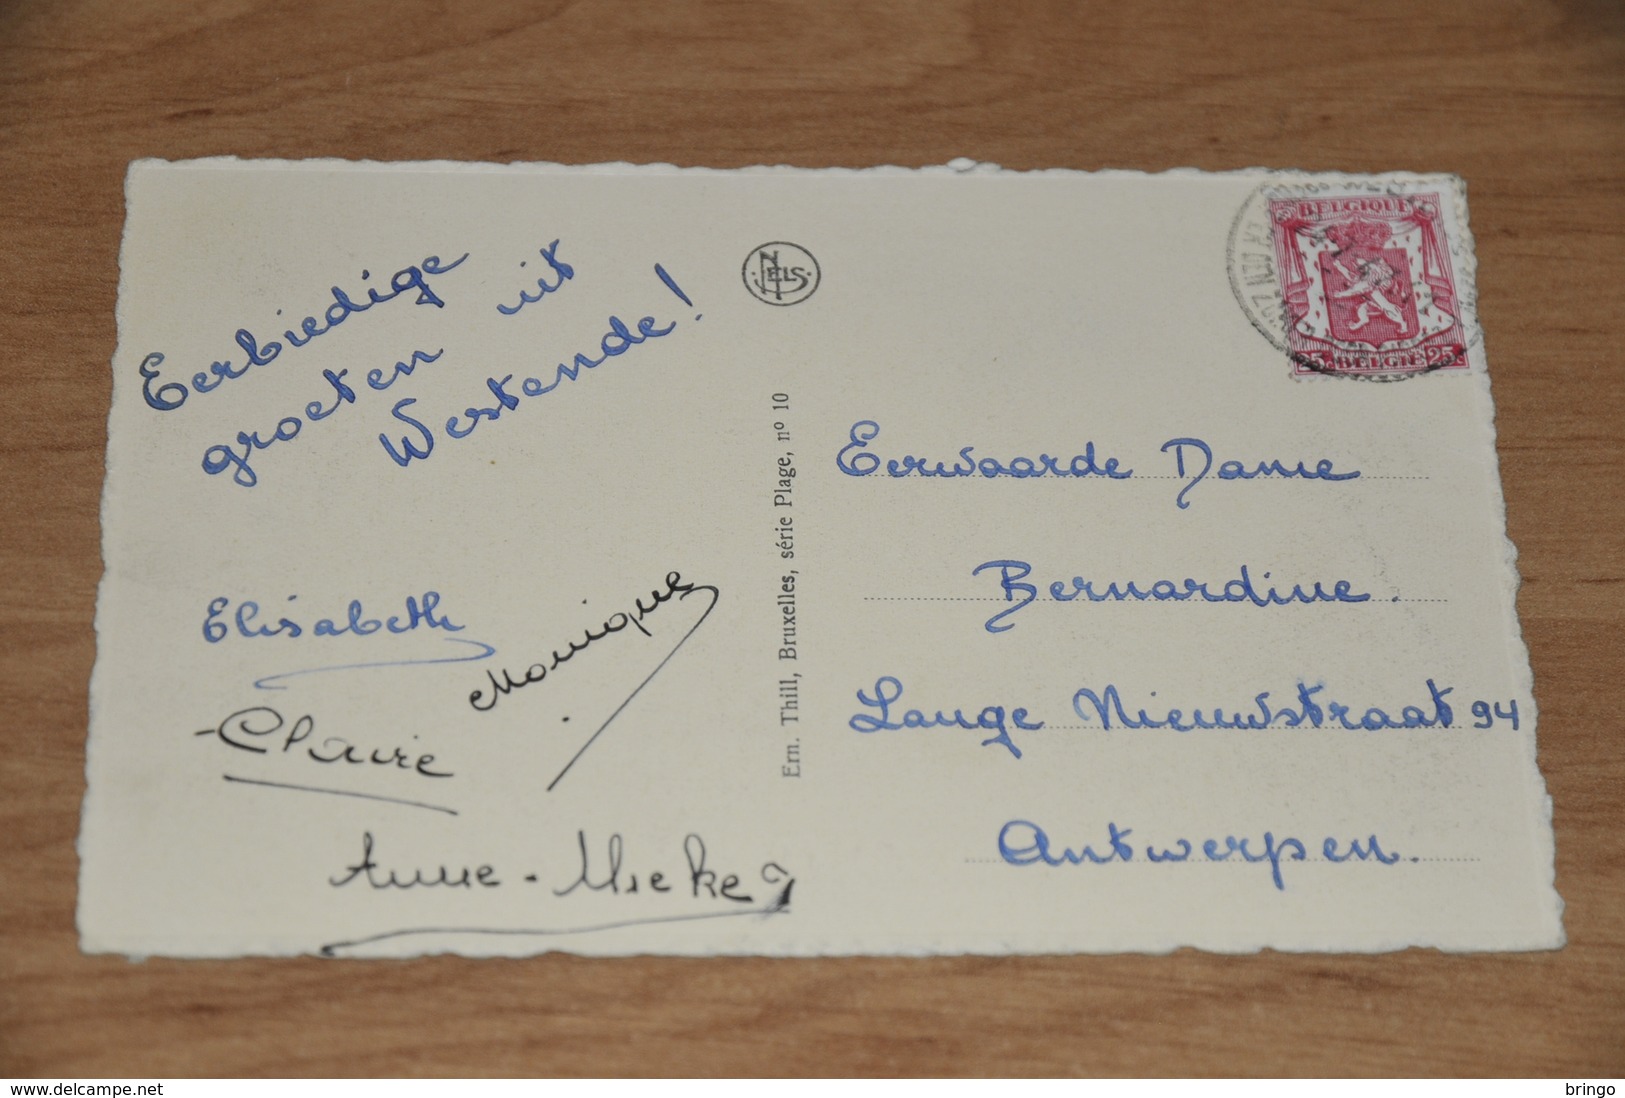 Eerbiedige
groeten uit
Westende!
Elisabeth
Monique
Claire
Anne-Mieke
NELS
Ern. Thill, Bruxelles, série Plage, nº 10
BELGIQUE
25c BELGIË 25c
Eerwaarde Dame
Bernardine.
Lange Nieuwstraat 94
Antwerpen.
www.delcampe.net
bringo